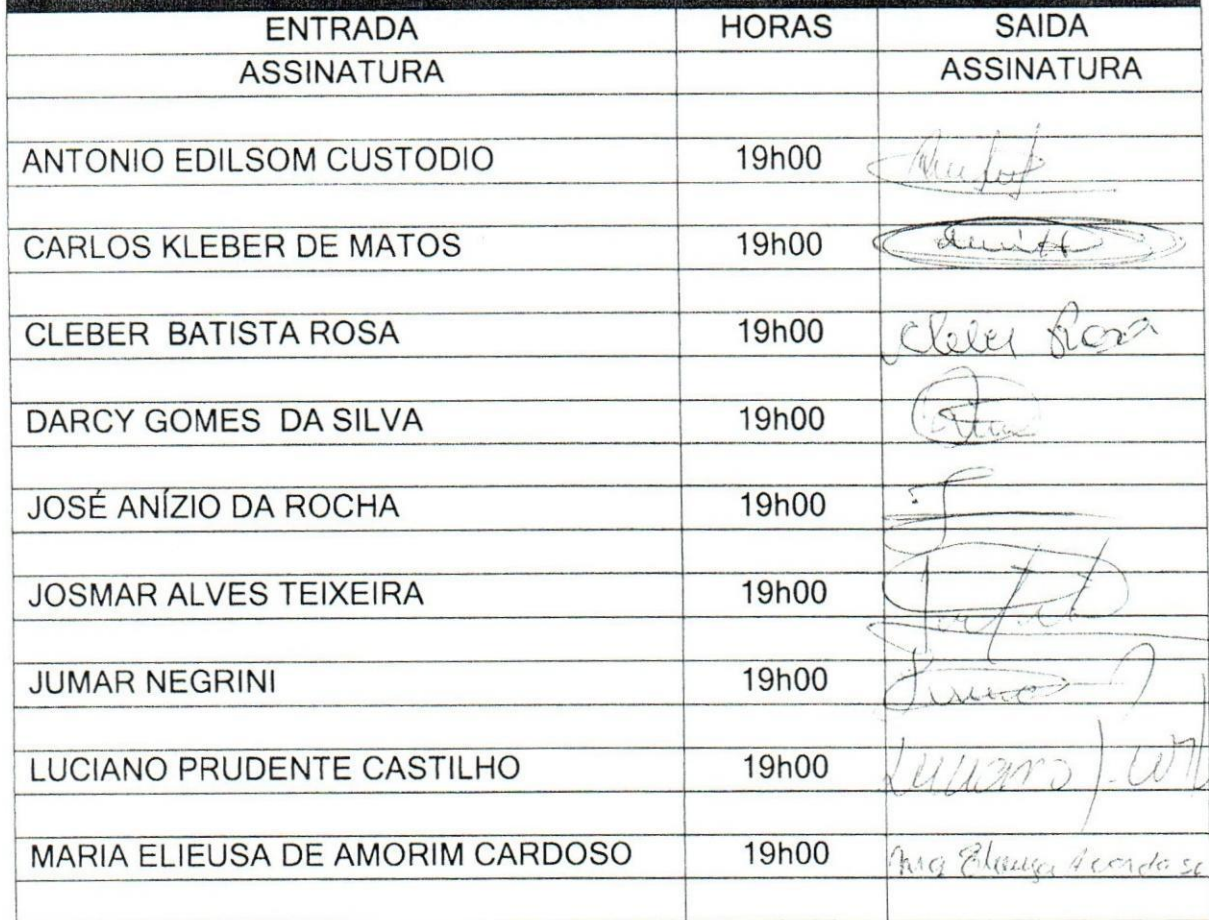 ENTRADA HORAS SAIDA
ASSINATURA ASSINATURA
ANTONIO EDILSOM CUSTODIO 19h00
CARLOS KLEBER DE MATOS 19h00
CLEBER BATISTA ROSA 19h00 Cleber Rosa
DARCY GOMES DA SILVA 19h00
JOSÉ ANÍZIO DA ROCHA 19h00
JOSMAR ALVES TEIXEIRA 19h00
JUMAR NEGRINI 19h00
LUCIANO PRUDENTE CASTILHO 19h00 Luciano
MARIA ELIEUSA DE AMORIM CARDOSO 19h00